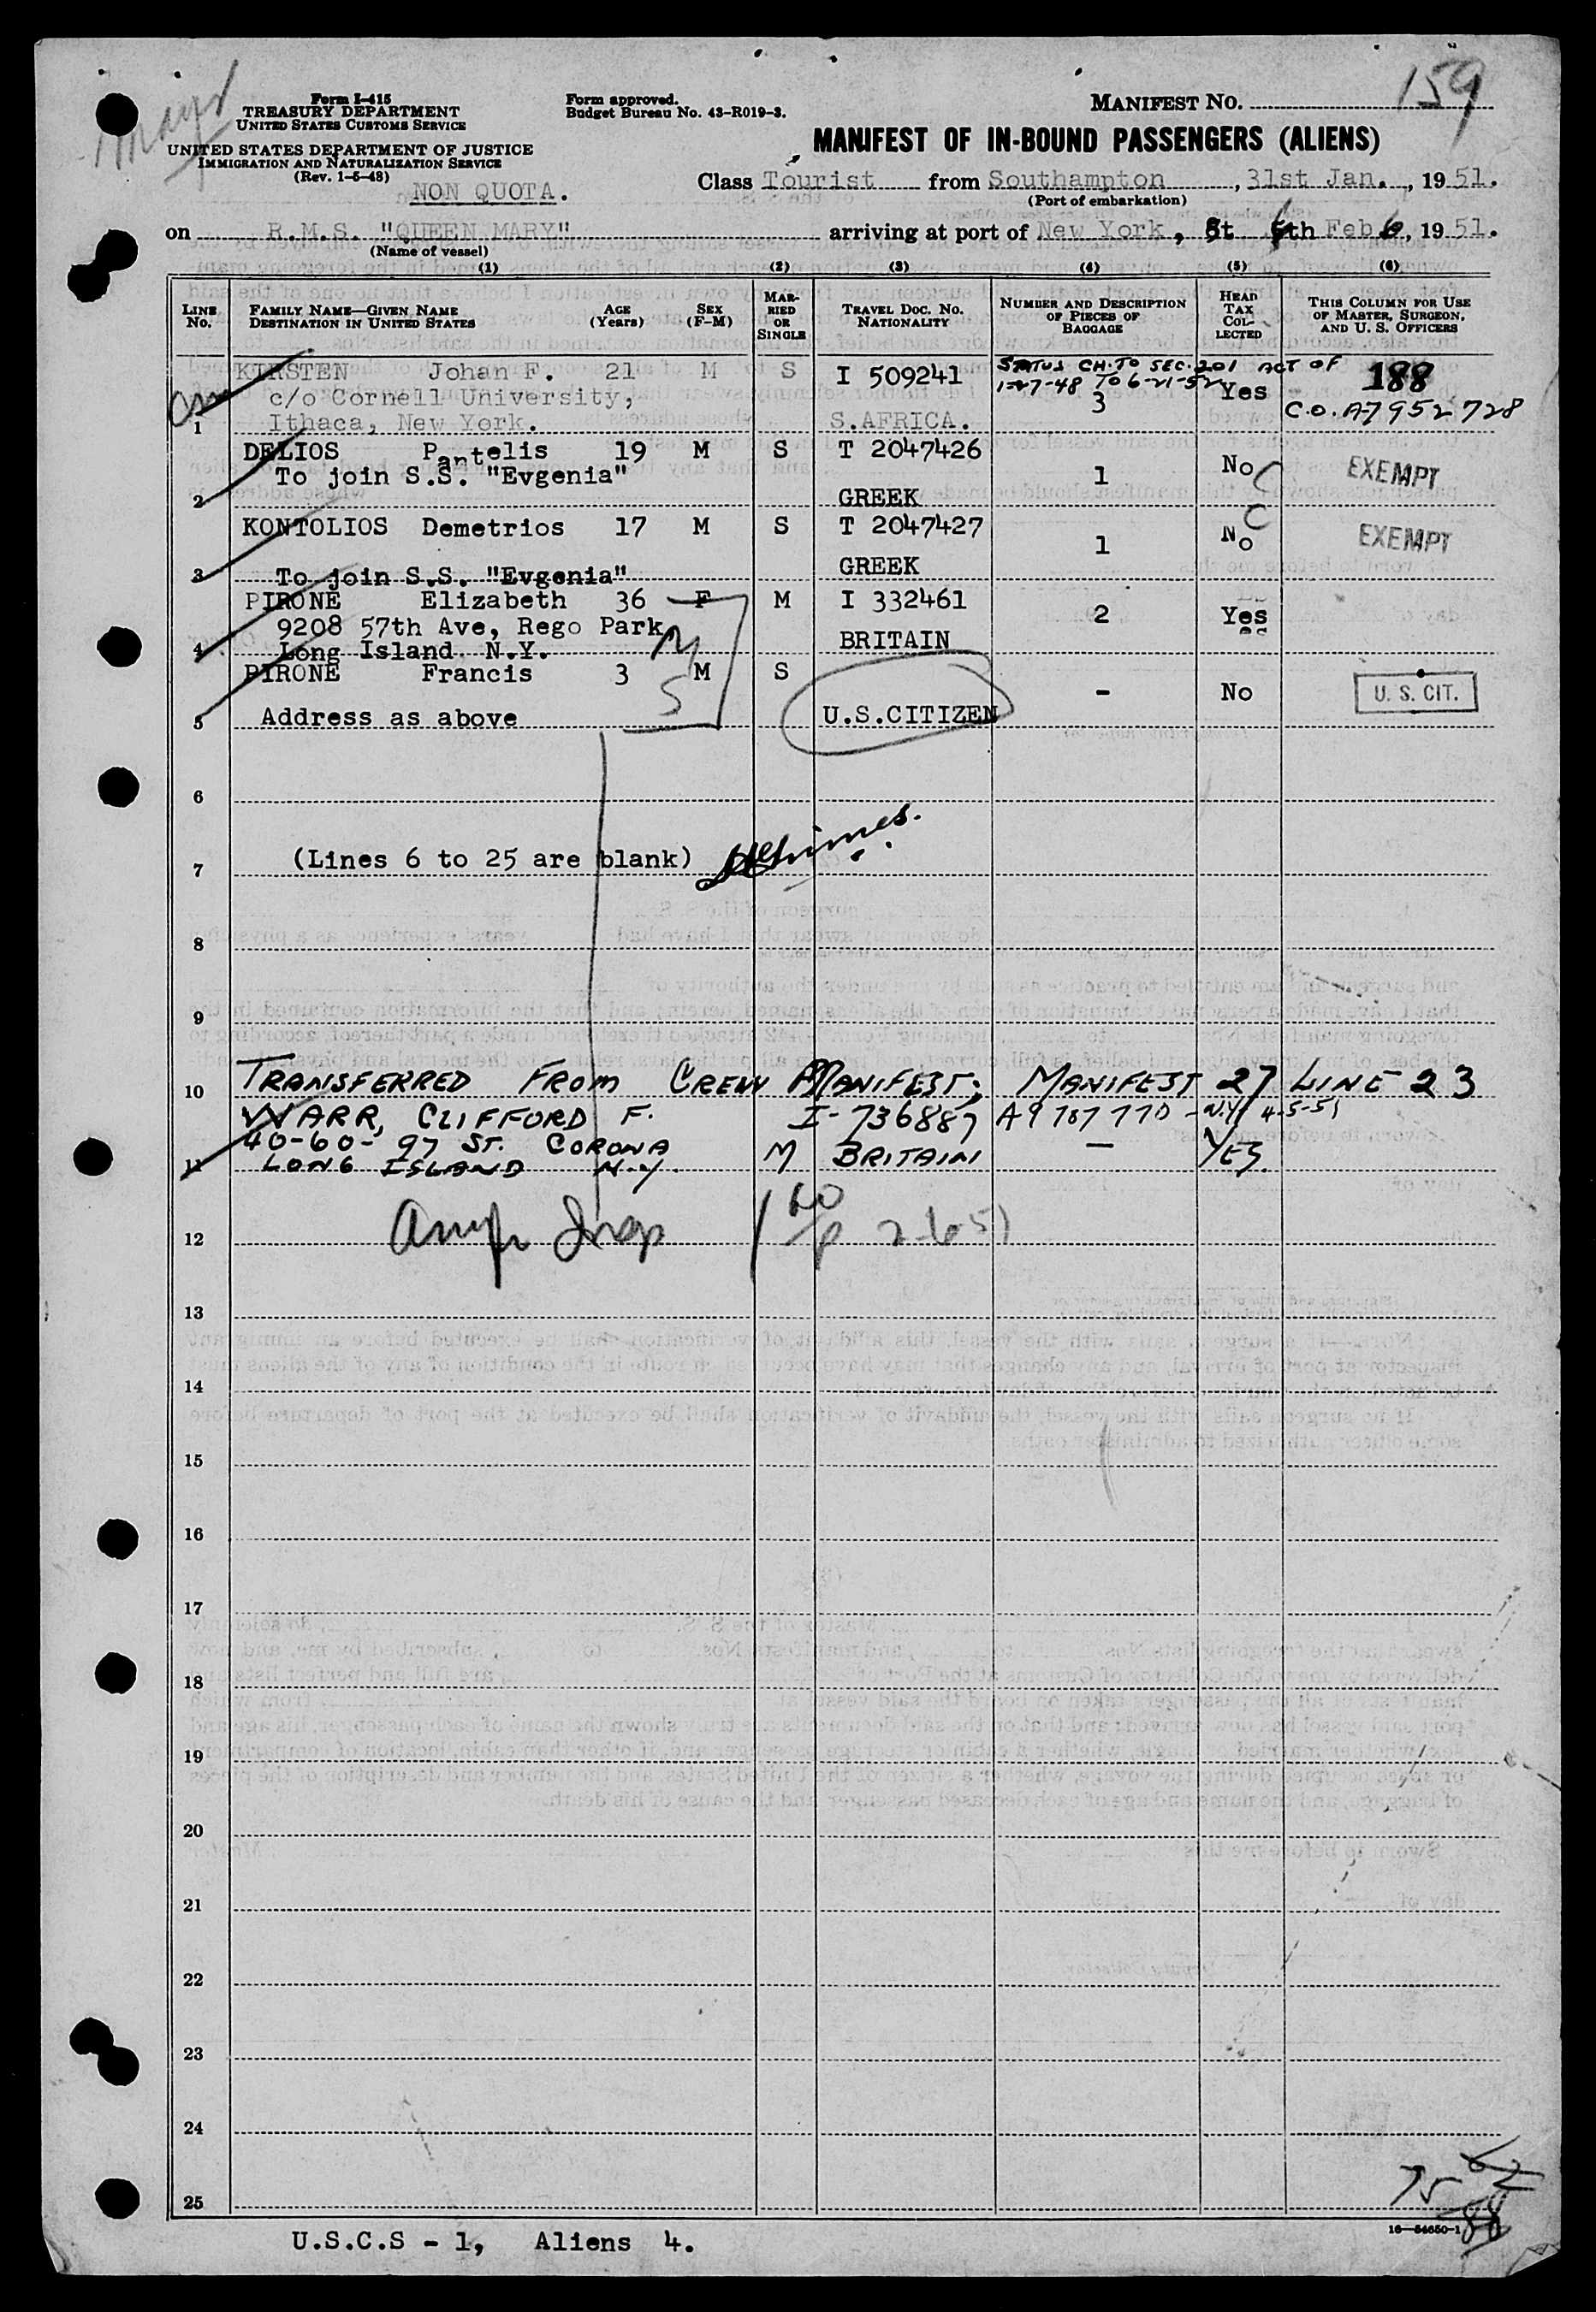 Form I-415
TREASURY DEPARTMENT
UNITED STATES CUSTOMS SERVICE
UNITED STATES DEPARTMENT OF JUSTICE
IMMIGRATION AND NATURALIZATION SERVICE
(Rev. 1-5-48)
NON QUOTA.
Form approved.
Budget Bureau No. 43-R019-3.
MANIFEST NO. 159
MANIFEST OF IN-BOUND PASSENGERS (ALIENS)
Class Tourist from Southampton, 31st Jan., 1951.
(Port of embarkation)
on R.M.S. "QUEEN MARY" arriving at port of New York, 6th Feb 6, 1951.
(Name of vessel)
(1) (2) (3) (4) (5) (6)
LINE No. FAMILY NAME—GIVEN NAME DESTINATION IN UNITED STATES AGE (Years) SEX (F-M) MARRIED OR SINGLE TRAVEL DOC. NO. NATIONALITY NUMBER AND DESCRIPTION OF PIECES OF BAGGAGE HEAD TAX COLLECTED THIS COLUMN FOR USE OF MASTER, SURGEON, AND U. S. OFFICERS
STATUS CH. TO SEC. 201 ACT OF
1-27-48 TO 6-21-52
KIRSTEN Johan F. 21 M S I 509241 3 Yes 188
c/o Cornell University, C.O. A7952728
1 Ithaca, New York. S.AFRICA.
DELIOS Pantelis 19 M S T 2047426 1 No C EXEMPT
To join S.S. "Evgenia"
2 GREEK
KONTOLIOS Demetrios 17 M S T 2047427 1 No C EXEMPT
GREEK
3 To join S.S. "Evgenia"
PIRONE Elizabeth 36 F M I 332461 2 Yes
9208 57th Ave, Rego Park
4 Long Island N.Y. BRITAIN
PIRONE Francis 3 M S - No U. S. CIT.
5 Address as above U.S.CITIZEN
6
7 (Lines 6 to 25 are blank)
8
9
10 TRANSFERRED FROM CREW MANIFEST; MANIFEST 27 LINE 23
WARR, CLIFFORD F. I-736887 A9787770 - N.Y. 4-5-51
40-60- 97 ST. CORONA
11 LONG ISLAND N.Y. M BRITAIN — YES.
12
13
14
15
16
17
18
19
20
21
22
23
24
25
75
88
16—54650-1
U.S.C.S - 1, Aliens 4.